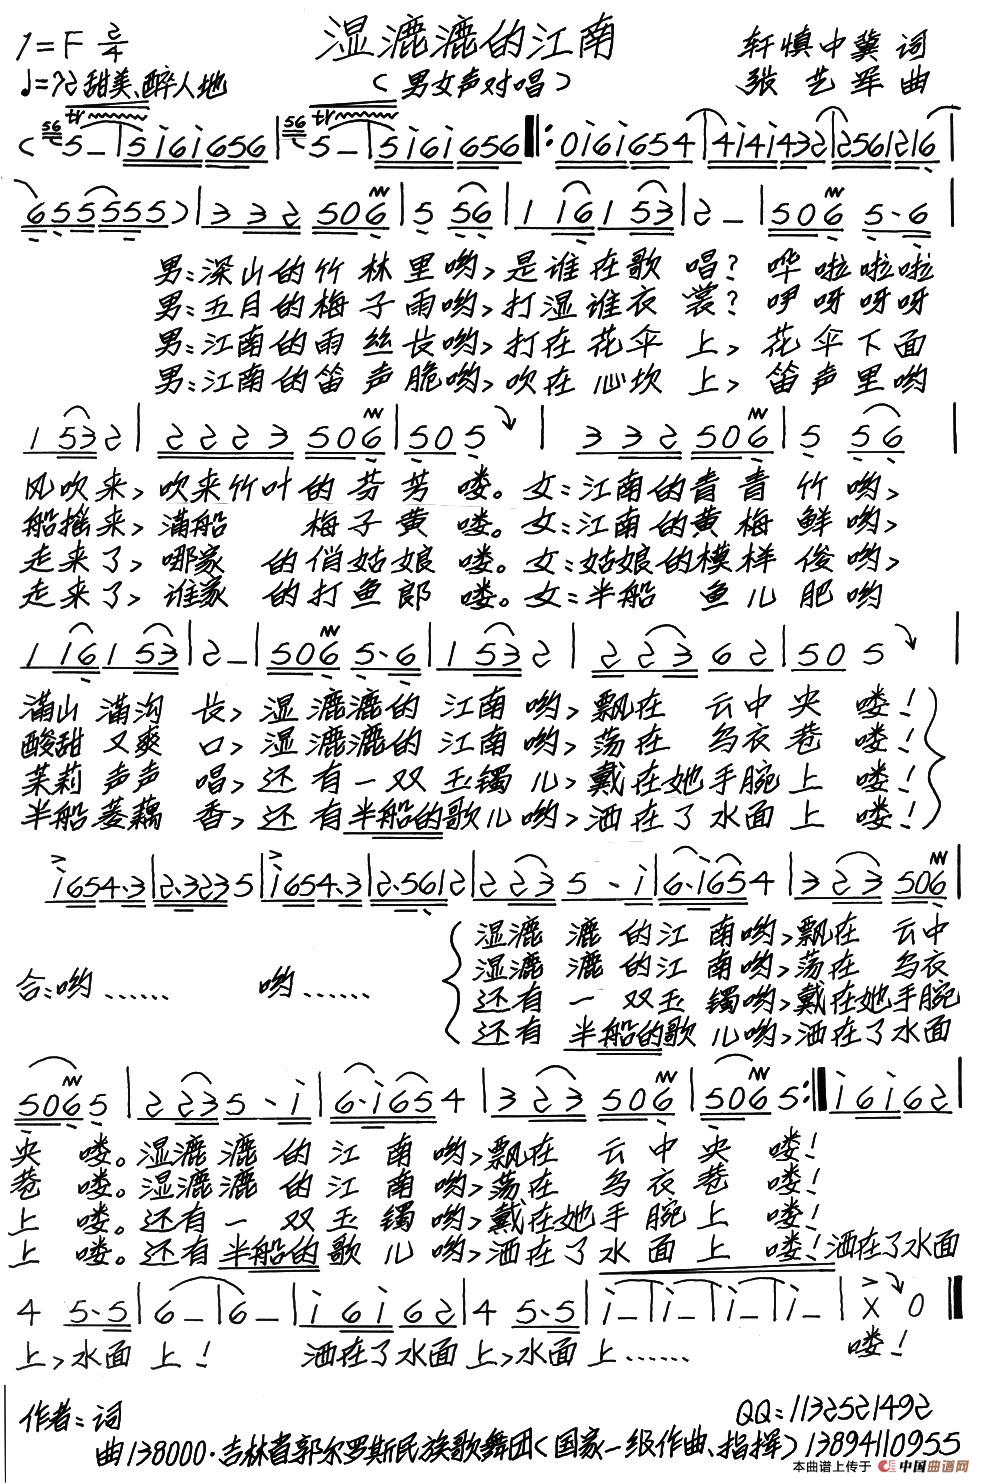 湿漉漉的江南
1=F 2/4
♩=72 甜美、醉人地
(男女声对唱)
轩慎中冀 词
张艺军 曲
男:深山的竹林里哟,是谁在歌唱?哗啦啦啦
男:五月的梅子雨哟,打湿谁衣裳?咿呀呀呀
男:江南的雨丝长哟,打在花伞上,花伞下面
男:江南的笛声脆哟,吹在心坎上,笛声里哟
风吹来,吹来竹叶的芬芳喽。女:江南的青青竹哟,
船摇来,满船梅子黄喽。女:江南的黄梅鲜哟,
走来了,哪家的俏姑娘喽。女:姑娘的模样俊哟,
走来了,谁家的打鱼郎喽。女:半船鱼儿肥哟
满山满沟长,湿漉漉的江南哟,飘在云中央喽!
酸甜又爽口,湿漉漉的江南哟,荡在乌衣巷喽!
茉莉声声唱,还有一双玉镯儿,戴在她手腕上喽!
半船菱藕香,还有半船的歌儿哟,洒在了水面上喽!
湿漉漉的江南哟,飘在云中
湿漉漉的江南哟,荡在乌衣
合:哟…… 哟……
还有一双玉镯哟,戴在她手腕
还有半船的歌儿哟,洒在了水面
央喽。湿漉漉的江南哟,飘在云中央喽!
巷喽。湿漉漉的江南哟,荡在乌衣巷喽!
上喽。还有一双玉镯哟,戴在她手腕上喽!
上喽。还有半船的歌儿哟,洒在了水面上喽!洒在了水面
上,水面上! 洒在了水面上,水面上…… 喽!
作者:词
QQ:1132521492
曲138000·吉林省郭尔罗斯民族歌舞团(国家一级作曲、指挥)13894110955
本曲谱上传于 中国曲谱网